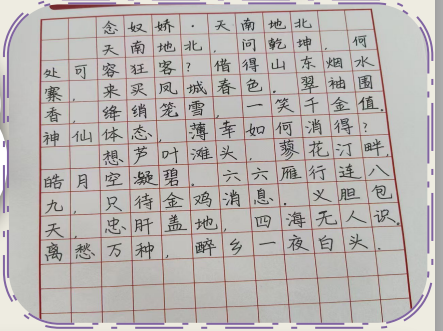 念奴娇·天南地北
天南地北,问乾坤.何
处可容狂客?借得山东烟水
寨,来买凤城春色.翠袖围
香,绛绡笼雪,一笑千金值.
神仙体态,薄幸如何消得?
想芦叶滩头,蓼花汀畔,
皓月空凝碧.六六雁行连八
九,只待金鸡消息.义胆包
天,忠肝盖地,四海无人识.
离愁万种,醉乡一夜白头.